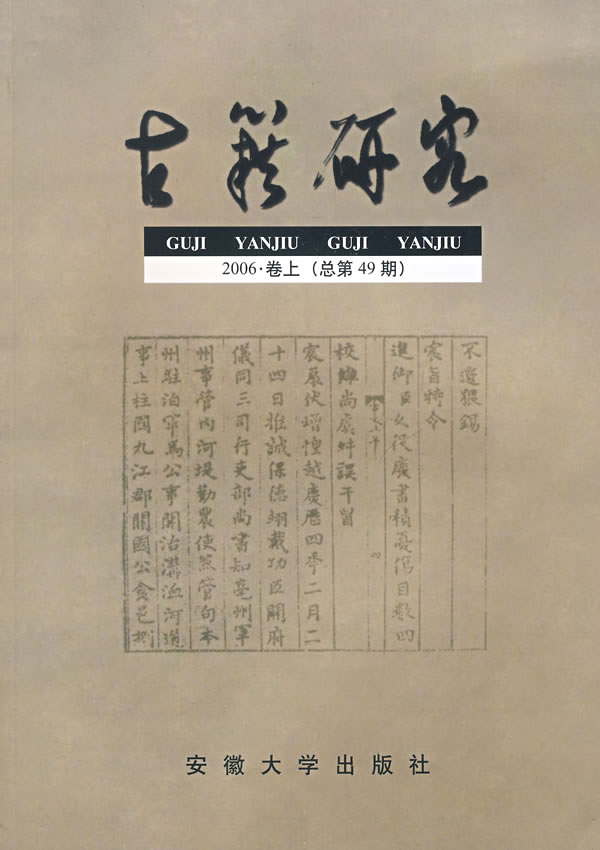 古籍研究
GUJI YANJIU GUJI YANJIU
2006·卷上（总第49期）
不遺猥錫
宸旨特令
進御臣久從廢書積憂傷目數四
四
校讎尚慮舛誤干冒
宸扆伏增惶越慶曆四年二月二
十四日推誠保德翊戴功臣開府
儀同三司行吏部尚書知亳州軍
州事管內河堤勸農使兼管句本
州駐泊軍馬公事開治溝洫河道
事上柱國九江郡開國公食邑捌
安徽大学出版社